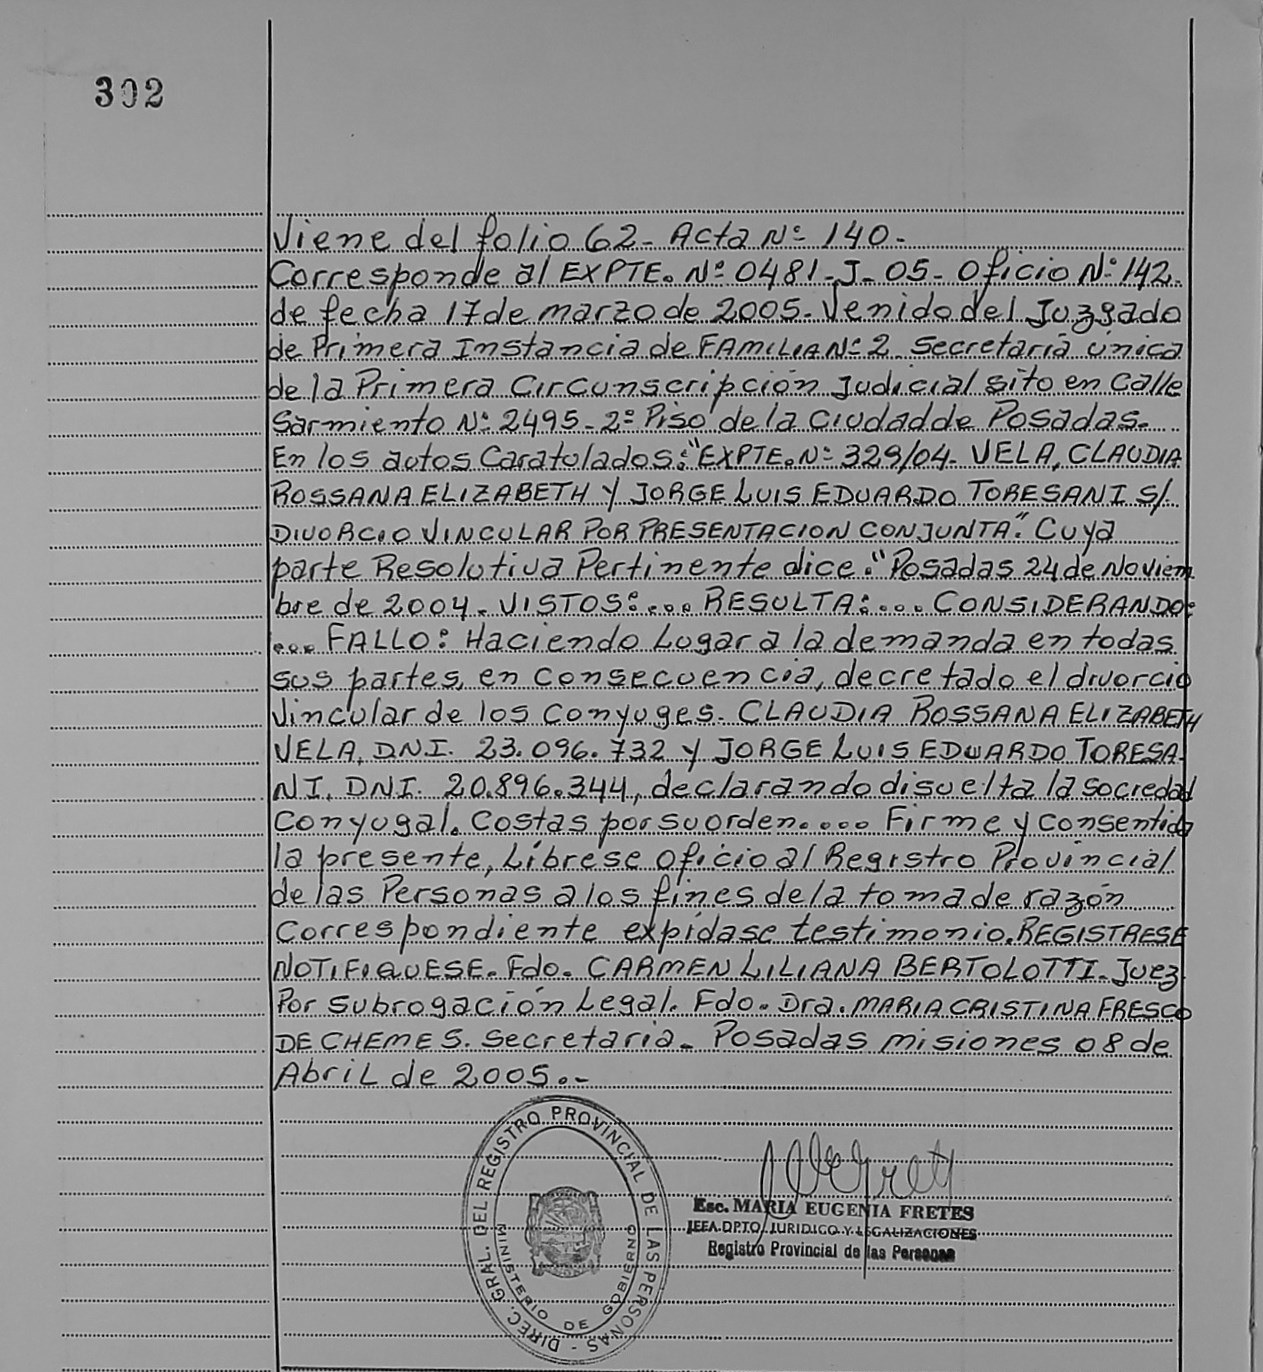 302
Viene del folio 62- Acta Nº 140-
Corresponde al EXPTE. Nº 0481-J-05- Oficio Nº 142.
de fecha 17 de marzo de 2005- Venido del Juzgado
de Primera Instancia de FAMILIA Nº 2 Secretaria única
de la Primera Circunscripción Judicial sito en Calle
Sarmiento Nº 2495-2º Piso de la Ciudad de Posadas.
En los autos Caratulados: "EXPTE. Nº 329/04- VELA, CLAUDIA
ROSSANA ELIZABETH Y JORGE LUIS EDUARDO TORESANI S/.
DIVORCIO VINCULAR POR PRESENTACION CONJUNTA". Cuya
parte Resolutiva Pertinente dice: "Posadas 24 de Noviem
bre de 2004- VISTOS:... RESULTA:... CONSIDERANDO:
... FALLO: Haciendo Lugar a la demanda en todas
sus partes, en consecuencia, decretado el divorcio
Vincular de los Conyuges- CLAUDIA ROSSANA ELIZABETH
VELA, DNI. 23.096.732 y JORGE LUIS EDUARDO TORESA-
NI, DNI. 20.896.344, declarando disuelta la sociedad
Conyugal. Costas por su orden.... Firme y consentida
la presente, Líbrese oficio al Registro Provincial
de las Personas a los fines de la toma de razón
Correspondiente expídase testimonio. REGISTRESE
NOTIFIQUESE- Fdo. CARMEN LILIANA BERTOLOTTI- Juez
Por Subrogación Legal. Fdo- Dra. MARIA CRISTINA FRESCO
DE CHEMES. Secretaria- Posadas misiones 08 de
Abril de 2005.-
DIREC. GRAL. DEL REGISTRO PROVINCIAL DE LAS PERSONAS -
MINISTERIO DE GOBIERNO
Esc. MARIA EUGENIA FRETES
JEFA DPTO. JURIDICO Y LEGALIZACIONES
Registro Provincial de las Personas